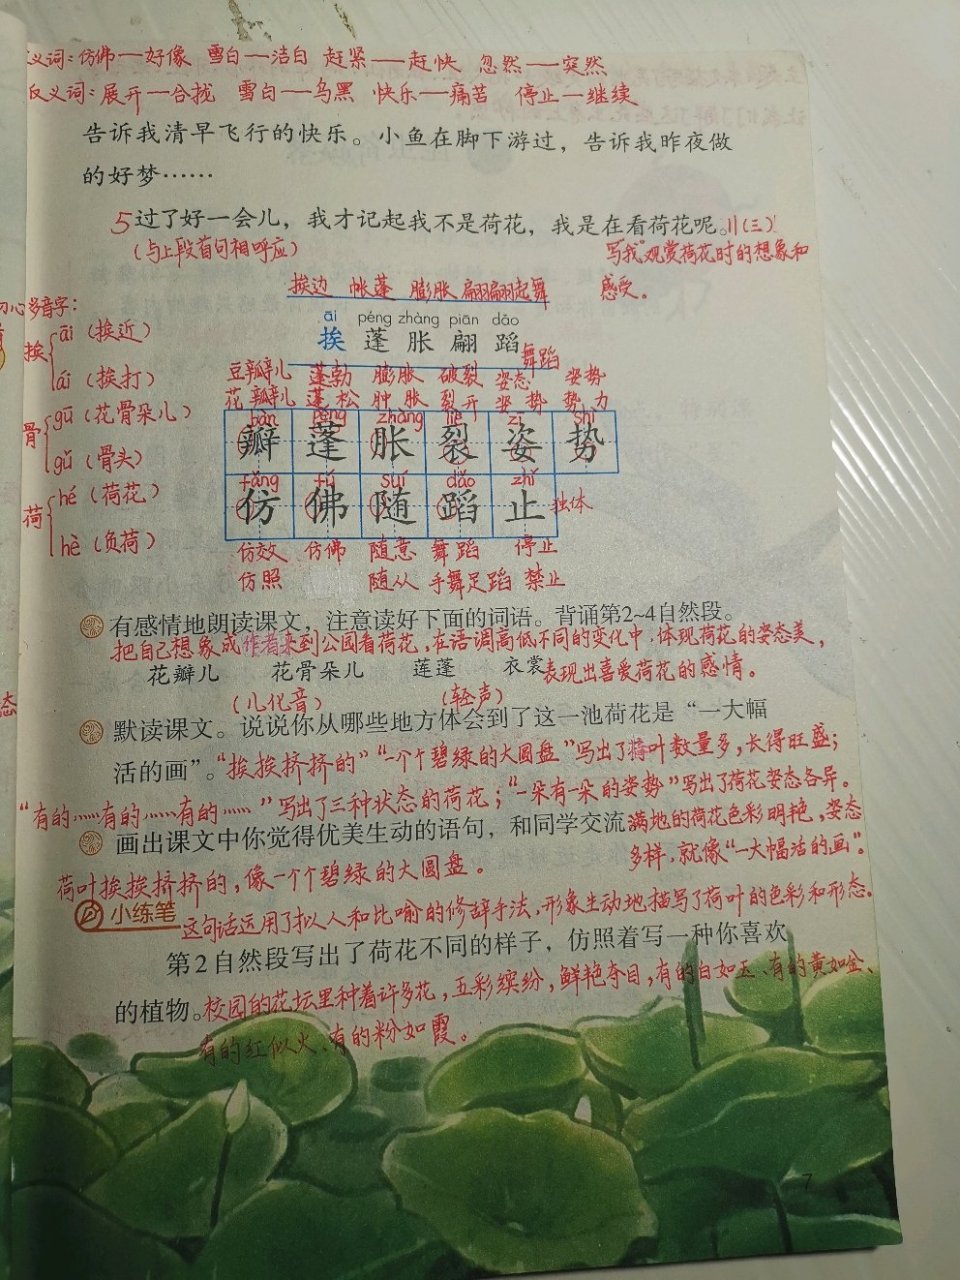 义词：仿佛—好像 雪白—洁白 赶紧—赶快 忽然—突然
反义词：展开—合拢 雪白—乌黑 快乐—痛苦 停止—继续
告诉我清早飞行的快乐。小鱼在脚下游过，告诉我昨夜做
的好梦……
5 过了好一会儿，我才记起我不是荷花，我是在看荷花呢。||（三）
（与上段首句相呼应）
写我“观赏荷花时的想象和
感受。
挨边 帐蓬 膨胀 翩翩起舞
āi péng zhàng piān dǎo
挨 蓬 胀 翩 蹈
舞蹈
心多音字：
挨 āi（挨近）
ái（挨打）
骨 gū（花骨朵儿）
gǔ（骨头）
荷 hé（荷花）
hè（负荷）
豆瓣儿 蓬勃 膨胀 破裂 姿态 姿势
花瓣儿 蓬松 肿胀 裂开 姿势 势力
bàn péng zhàng liè zī shì
瓣 蓬 胀 裂 姿 势
fǎng fú suí dǎo zhǐ
仿 佛 随 蹈 止 独体
仿效 仿佛 随意 舞蹈 停止
仿照 随从 手舞足蹈 禁止
有感情地朗读课文，注意读好下面的词语。背诵第2~4自然段。
把自己想象成作者来到公园看荷花，在语调高低不同的变化中，体现荷花的姿态美，
花瓣儿 花骨朵儿 莲蓬 衣裳
表现出喜爱荷花的感情。
（儿化音） （轻声）
态
默读课文。说说你从哪些地方体会到了这一池荷花是“一大幅
活的画”。
“挨挨挤挤的”“一个个碧绿的大圆盘”写出了荷叶数量多，长得旺盛；
“有的……有的……有的……”写出了三种状态的荷花；“一朵有一朵的姿势”写出了荷花姿态各异。
画出课文中你觉得优美生动的语句，和同学交流
满地的荷花色彩明艳，姿态
多样，就像“一大幅活的画”。
荷叶挨挨挤挤的，像一个个碧绿的大圆盘。
小练笔
这句话运用了拟人和比喻的修辞手法，形象生动地描写了荷叶的色彩和形态。
第2自然段写出了荷花不同的样子，仿照着写一种你喜欢
的植物。
校园的花坛里种着许多花，五彩缤纷，鲜艳夺目，有的白如玉、有的黄如金、
有的红似火、有的粉如霞。
7